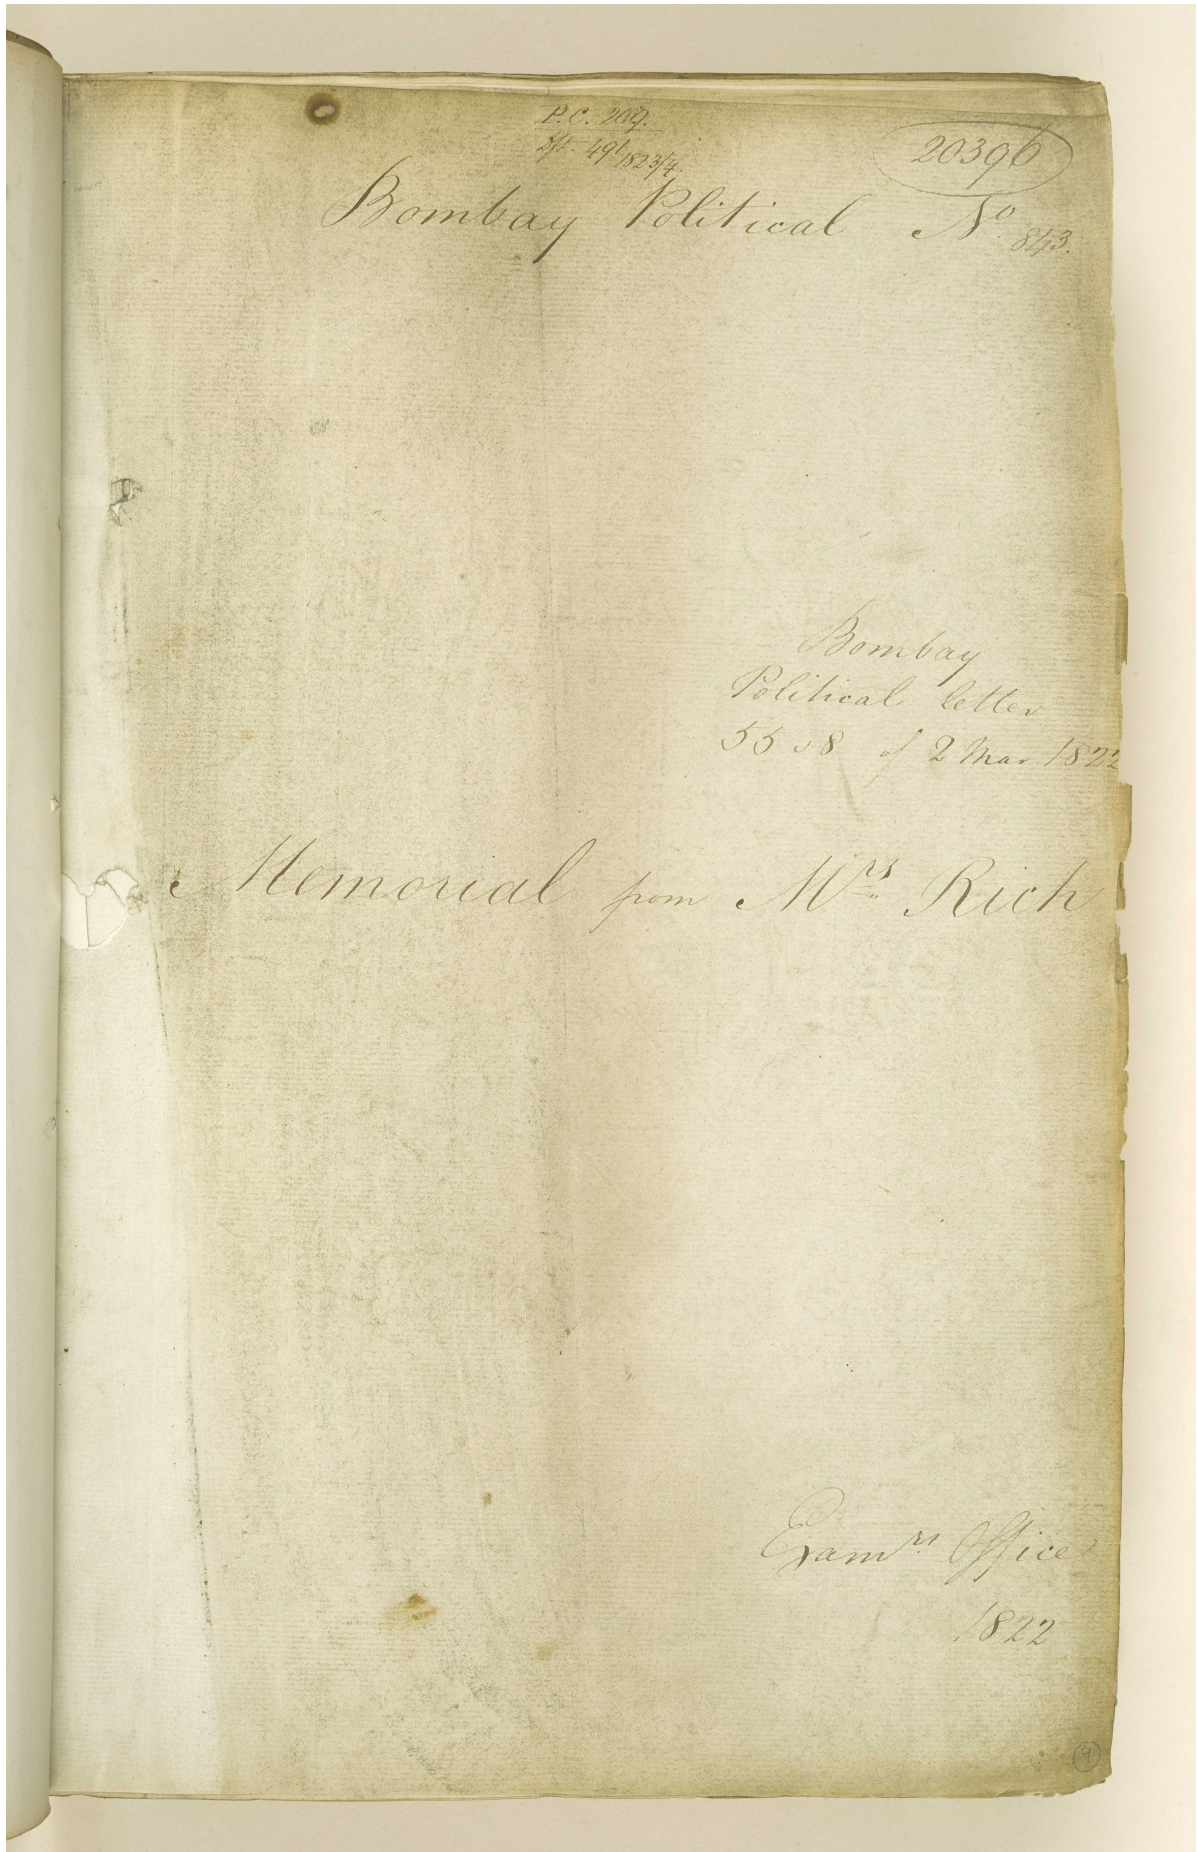 P.C. 209.
Dft. 491 1823/4.
20396
Bombay Political No 843.
Bombay
Political letter
of 2 Mar 1822
Memorial from Mrs. Rich
Examrs Office
1822
9